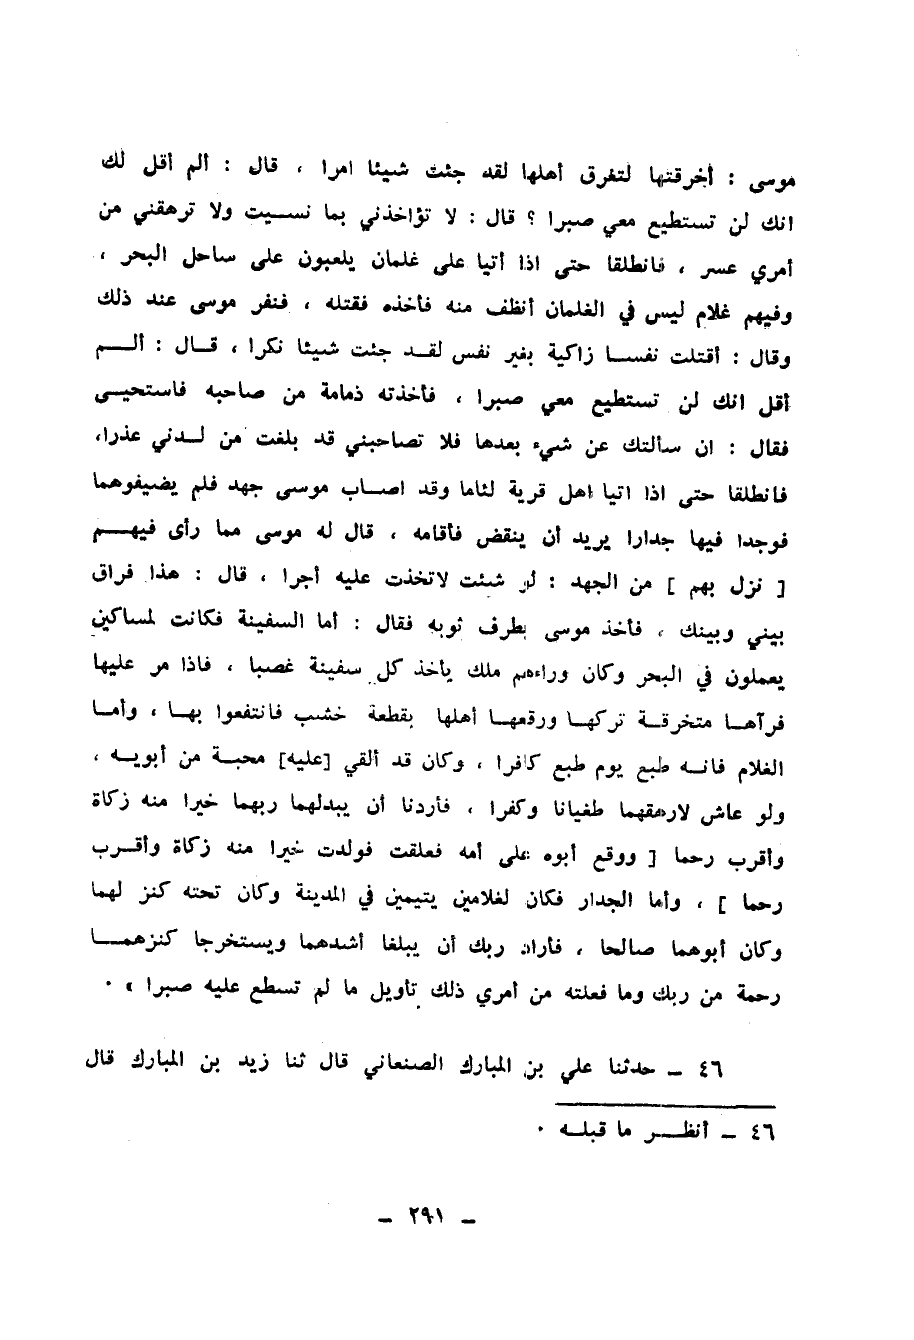 موسى : أخرقتها لتفرق أهلها لقد جئت شيئا امرا ، قال : ألم أقل لك
انك لن تستطيع معي صبرا ؟ قال : لا تؤاخذني بما نسيت ولا ترهقني من
أمري عسر ، فانطلقا حتى اذا أتيا على غلمان يلعبون على ساحل البحر ،
وفيهم غلام ليس في الغلمان أنظف منه فأخذه فقتله ، فنفر موسى عند ذلك
وقال : أقتلت نفسا زاكية بغير نفس لقد جئت شيئا نكرا ، قال : ألم
أقل انك لن تستطيع معي صبرا ، فأخذته ذمامة من صاحبه فاستحيى
فقال : ان سألتك عن شيء بعدها فلا تصاحبني قد بلغت من لدني عذرا،
فانطلقا حتى اذا اتيا اهل قرية لئاما وقد اصاب موسى جهد فلم يضيفوهما
فوجدا فيها جدارا يريد أن ينقض فأقامه ، قال له موسى مما رأى فيهم
[ نزل بهم ] من الجهد : لو شئت لاتخذت عليه أجرا ، قال : هذا فراق
بيني وبينك ، فأخذ موسى بطرف ثوبه فقال : أما السفينة فكانت لمساكين
يعملون في البحر وكان وراءهم ملك يأخذ كل سفينة غصبا ، فاذا مر عليها
فرآها متخرقة تركها ورقعها أهلها بقطعة خشب فانتفعوا بها ، وأما
الغلام فانه طبع يوم طبع كافرا ، وكان قد ألقي [عليه] محبة من أبويه ،
ولو عاش لارهقهما طغيانا وكفرا ، فأردنا أن يبدلهما ربهما خيرا منه زكاة
وأقرب رحما [ ووقع أبوه على أمه فعلقت فولدت خيرا منه زكاة وأقرب
رحما ] ، وأما الجدار فكان لغلامين يتيمين في المدينة وكان تحته كنز لهما
وكان أبوهما صالحا ، فأراد ربك أن يبلغا أشدهما ويستخرجا كنزهما
رحمة من ربك وما فعلته من أمري ذلك تأويل ما لم تسطع عليه صبرا » ٠
٤٦ ـ حدثنا علي بن المبارك الصنعاني قال ثنا زيد بن المبارك قال
٤٦ ـ أنظر ما قبله ٠
ـ ٢٩١ ـ